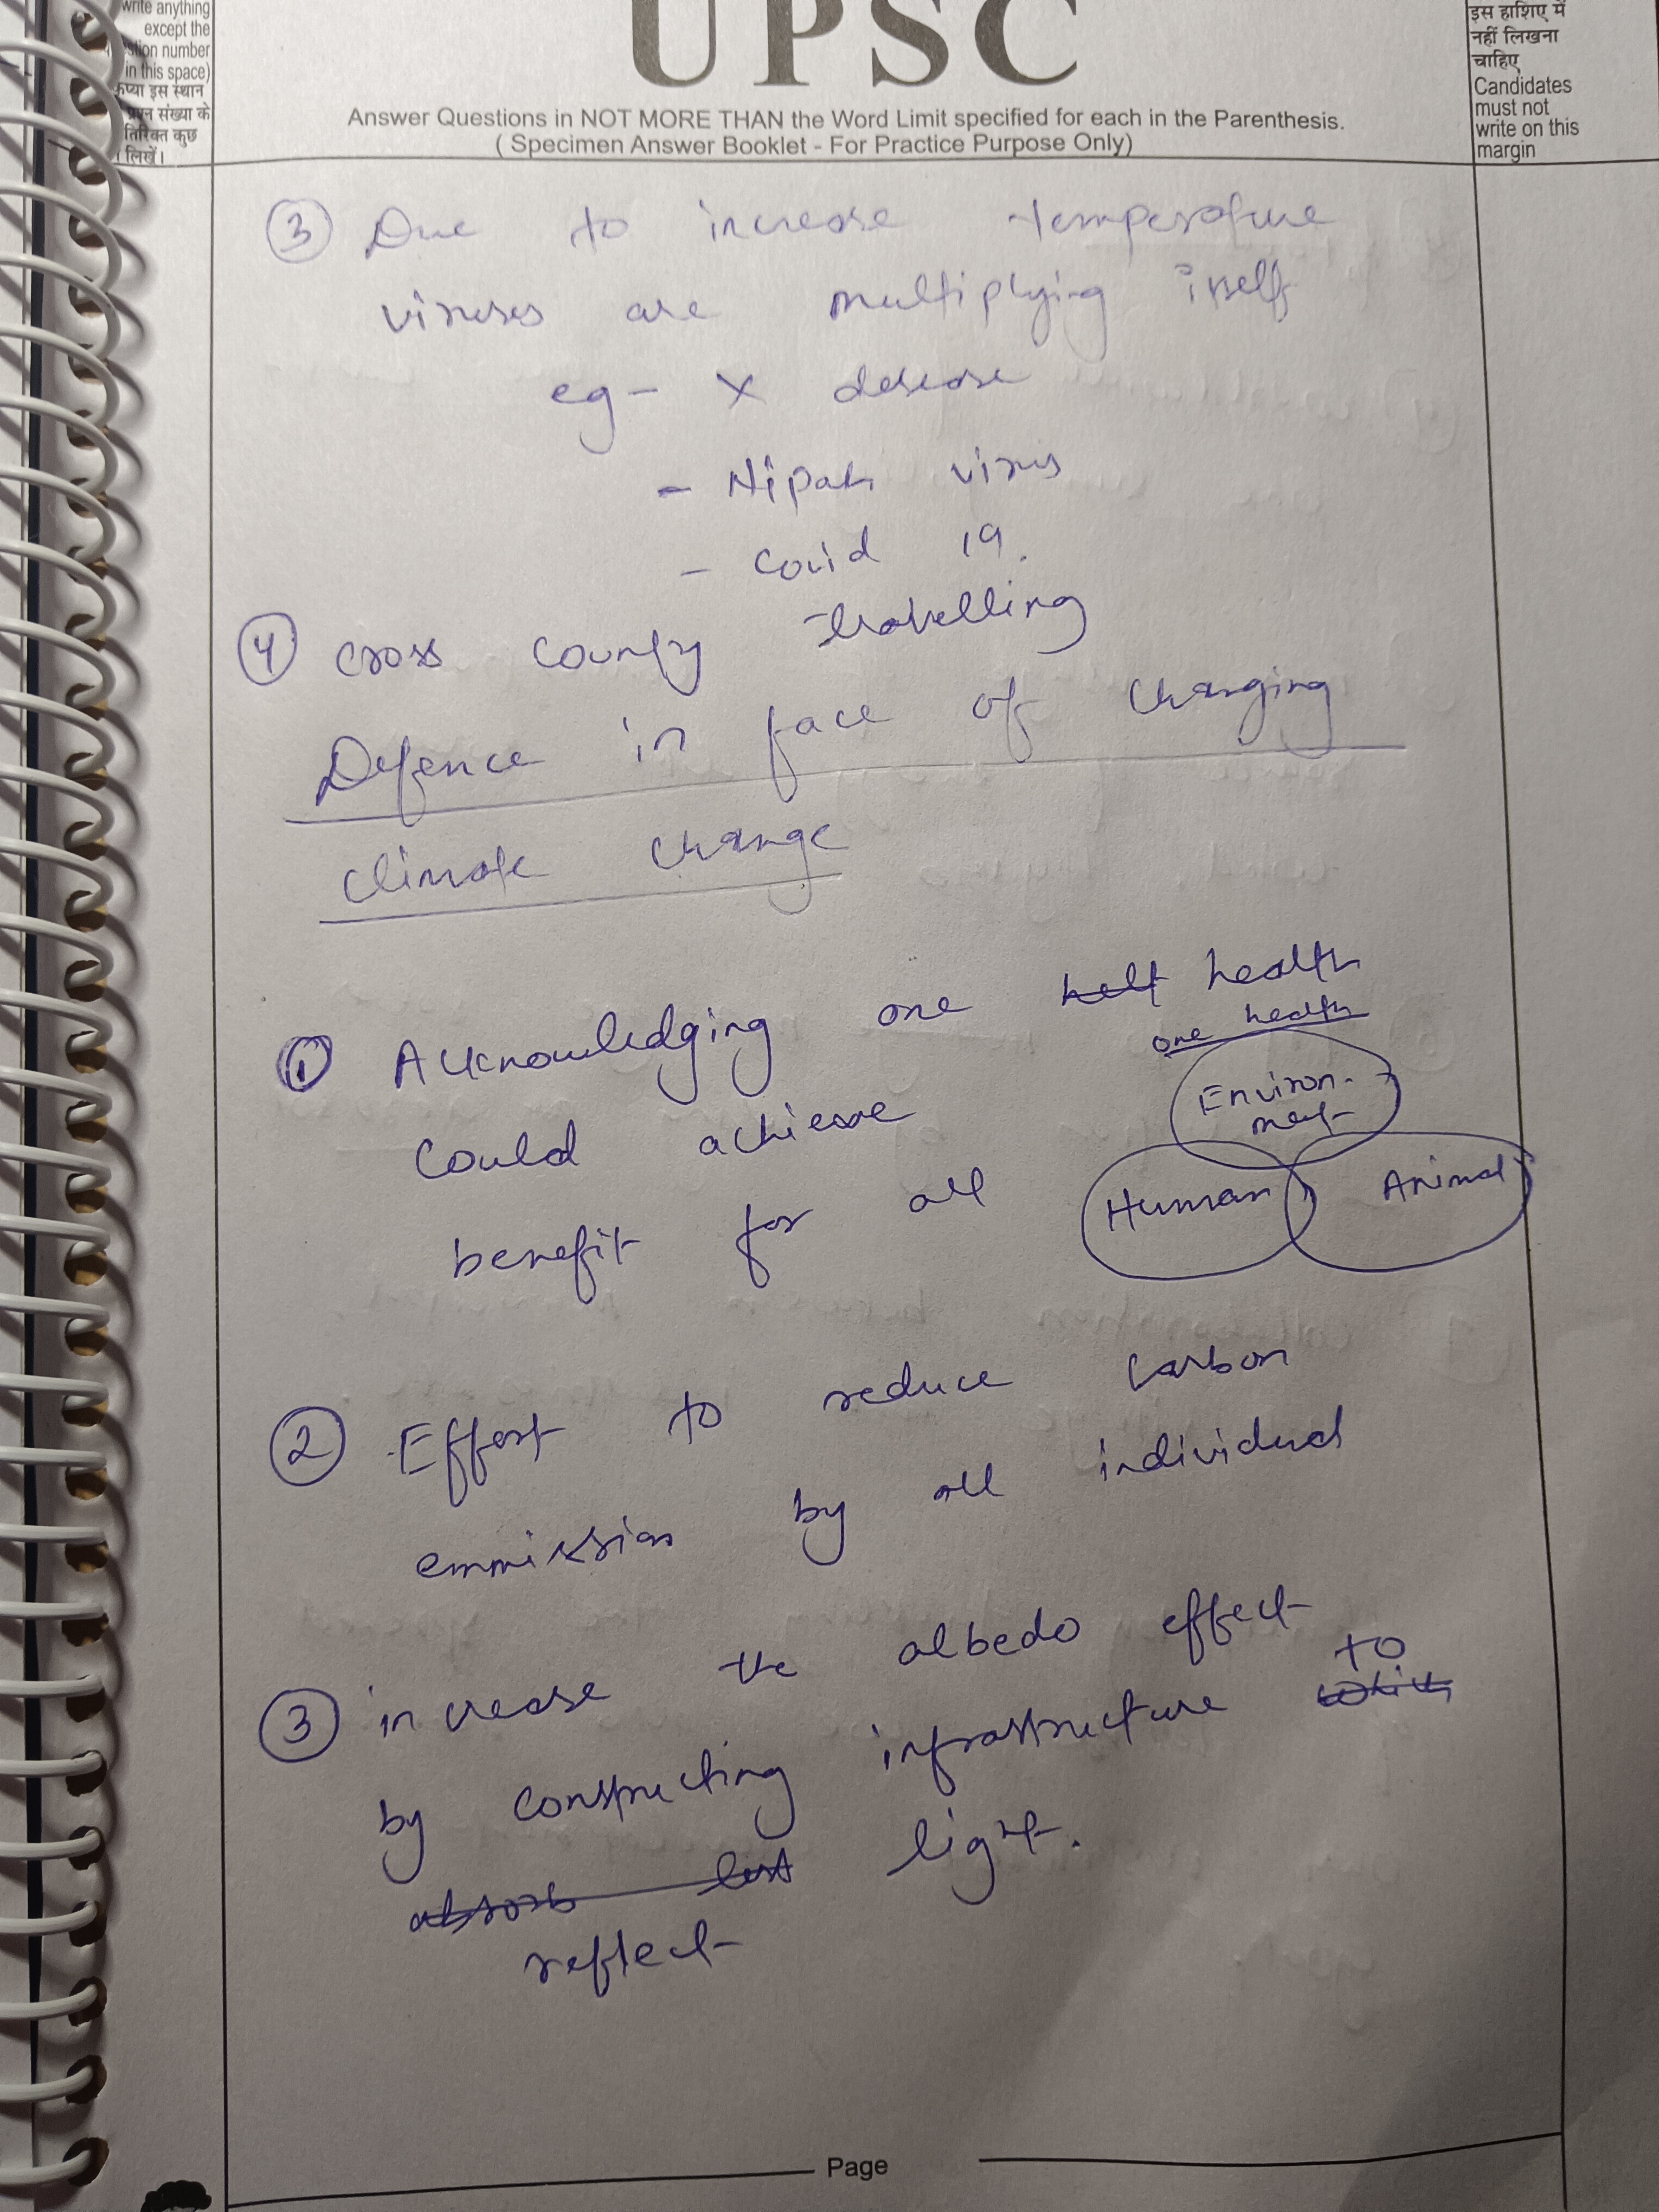 write anything
except the
stion number
in this space)
कृप्या इस स्थान
प्रश्न संख्या के
तिरिक्त कुछ
लिखें।
UPSC
Answer Questions in NOT MORE THAN the Word Limit specified for each in the Parenthesis.
( Specimen Answer Booklet - For Practice Purpose Only)
इस हाशिए में
नहीं लिखना
चाहिए
Candidates
must not
write on this
margin
3 Due to increase temperature
viruses are multiplying itself
eg - X desease
- Nipah virus
- Covid 19.
4 cross county travelling
Defence in face of changing
climate change
1 Acknowledging one helt health
could achieve
benefit for all
one health
Environ-
ment
Human
Animal
2 Effort to reduce carbon
emmission by all individual
3 increase the albedo effect
by constructing infrastructure which to
absorb lest light.
reflect
Page